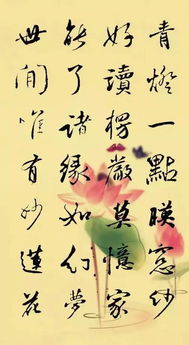 青燈一點暎窓紗
好讀楞嚴莫憶家
能了諸緣如幻夢
世间唯有妙蓮花